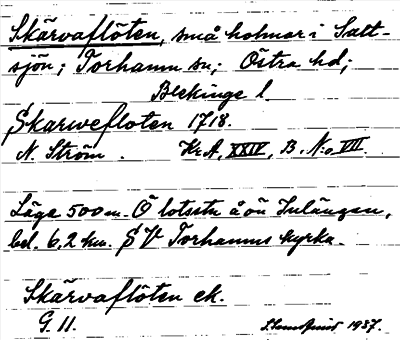 Skärvaflöten, små holmar i Salt-
sjön; Torhamn sn; Östra hd;
Blekinge l.
Skarwefloten 1718.
N. Ström. Kr.A, XXIV, B. N:o VII.
Läge 500 m. Ö lotsstn å ön Inlängan,
bel. 6,2 km. SV Torhamns kyrka.
Skärvaflöten ek.
G. 11. 1937.